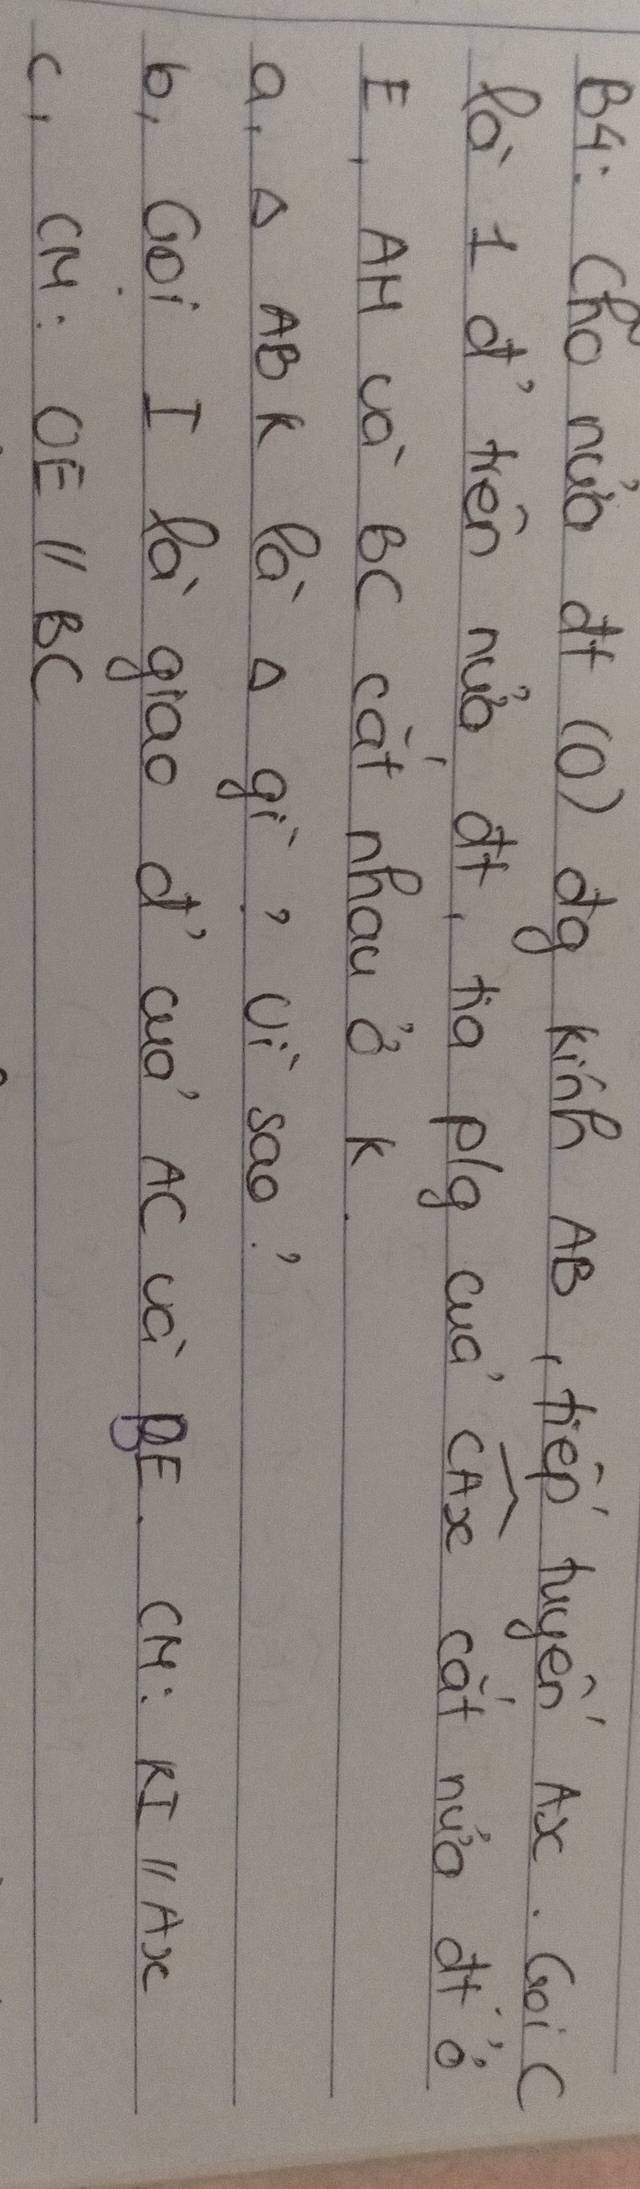 B4: Cho nửa đt (O) đg kính AB, tiếp tuyến Ax. Gọi C
là 1 đ' trên nửa đt, tia p/g của CAx cắt nửa đt ở
E, AH và BC cắt nhau ở K.
a, Δ ABK là Δ gì, vì sao?
b, Gọi I là giao đ' của AC và BE. CM: KI // Ax
c, CM: OE // BC